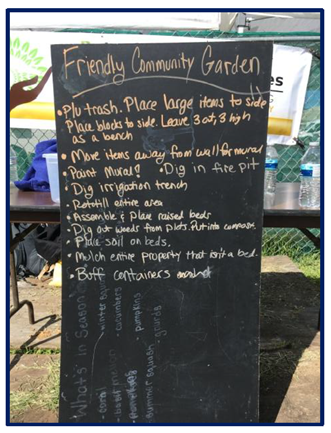 Friendly Community Garden
• Plu trash. Place large items to side
Place blocks to side. Leave 3 out, 3 high
as a bench
• Move items away from wall for mural
• Paint Mural? • Dig in fire pit
• Dig irrigation trench
• Rototill entire area
• Assemble & Place raised beds
• Dig out weeds from plots. Put into compost.
• Place soil on beds.
• Mulch entire property that isn't a bed.
• Buff containers
What's in Season
winter squash
• cucumbers
• pumpkins
• gourds
• corn
summer squash